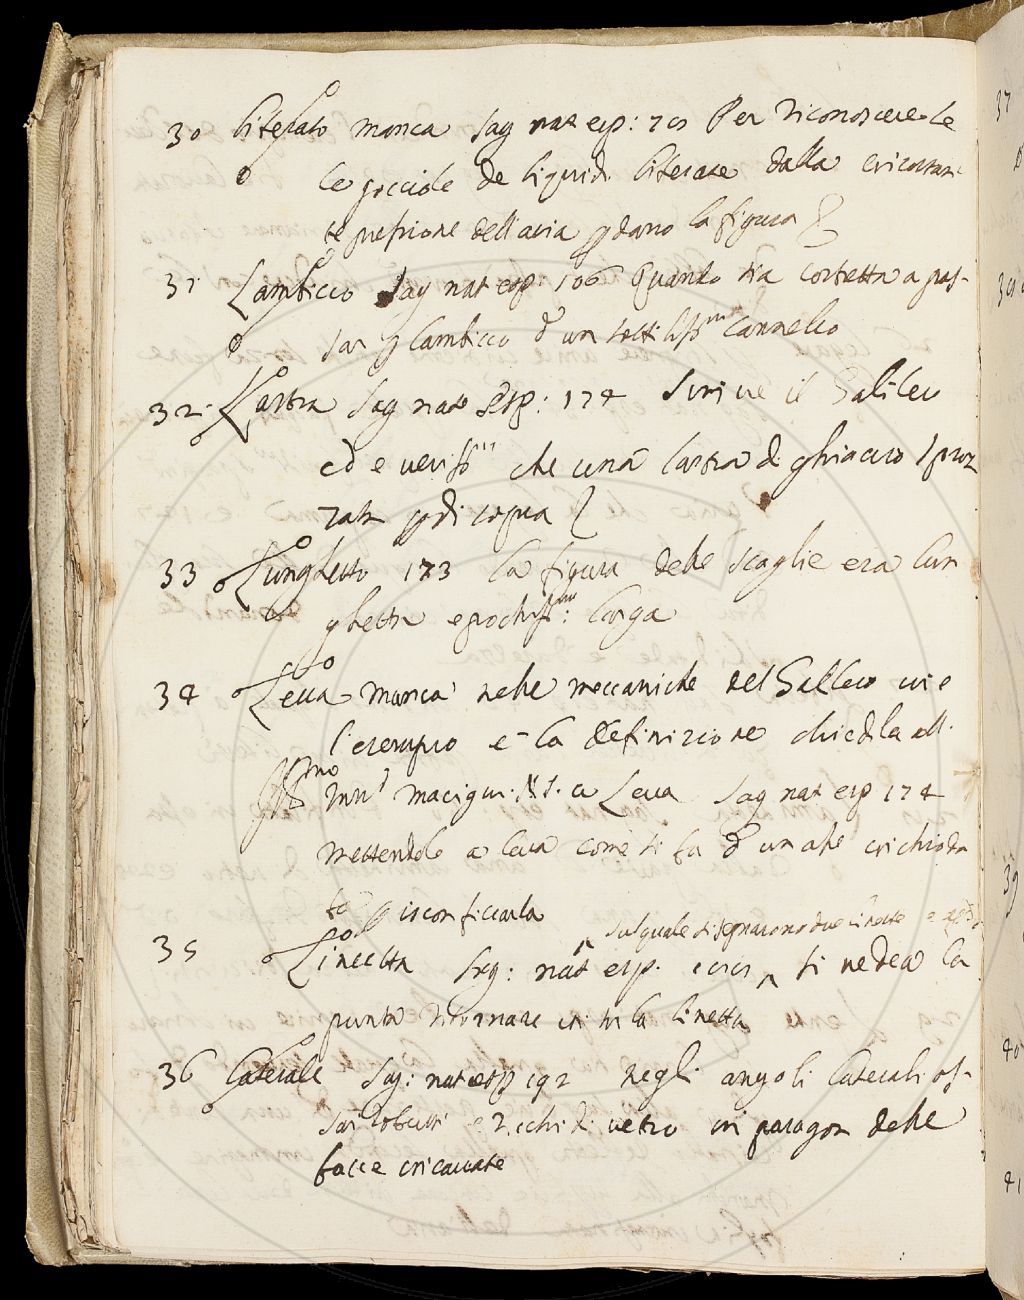 30 liberato manca Sag nat esp: 101 Per riconoscere se
le gocciole de liquidi liberate dalla circostan-
te pressione dell'aria pdano la figura
31 Lambicco Sag nat esp: 106 Quando sia costretta a pas-
sar p lambicco d'un sottiliss.mo cannello
32 Lastra Sag nat Esp: 174 Scrive il Galileo
ed e veriss.o che una lastra di ghiaccio spoz
zata
33 Lunghetto 173 la figura delle scaglie era lun
ghetta e pochiss.mo: larga
34 Leva manca nelle meccaniche del Galileo vi e
l'esempio e la definizione chiedila all:
Macigni: a Leva Sag nat esp 174
mettendole a leva come si fa d'un asse inchioda
ta p isconficcarla
sul quale disegnarono due linette
35 Linetta Sag: nat esp. si vedea la
punta ritornare in su la linetta
36 Laterale Sag: nat esp 192 negli angoli laterali as-
sai robusti e ricchi di vetro in paragon delle
facce incavate
37
39
40
41